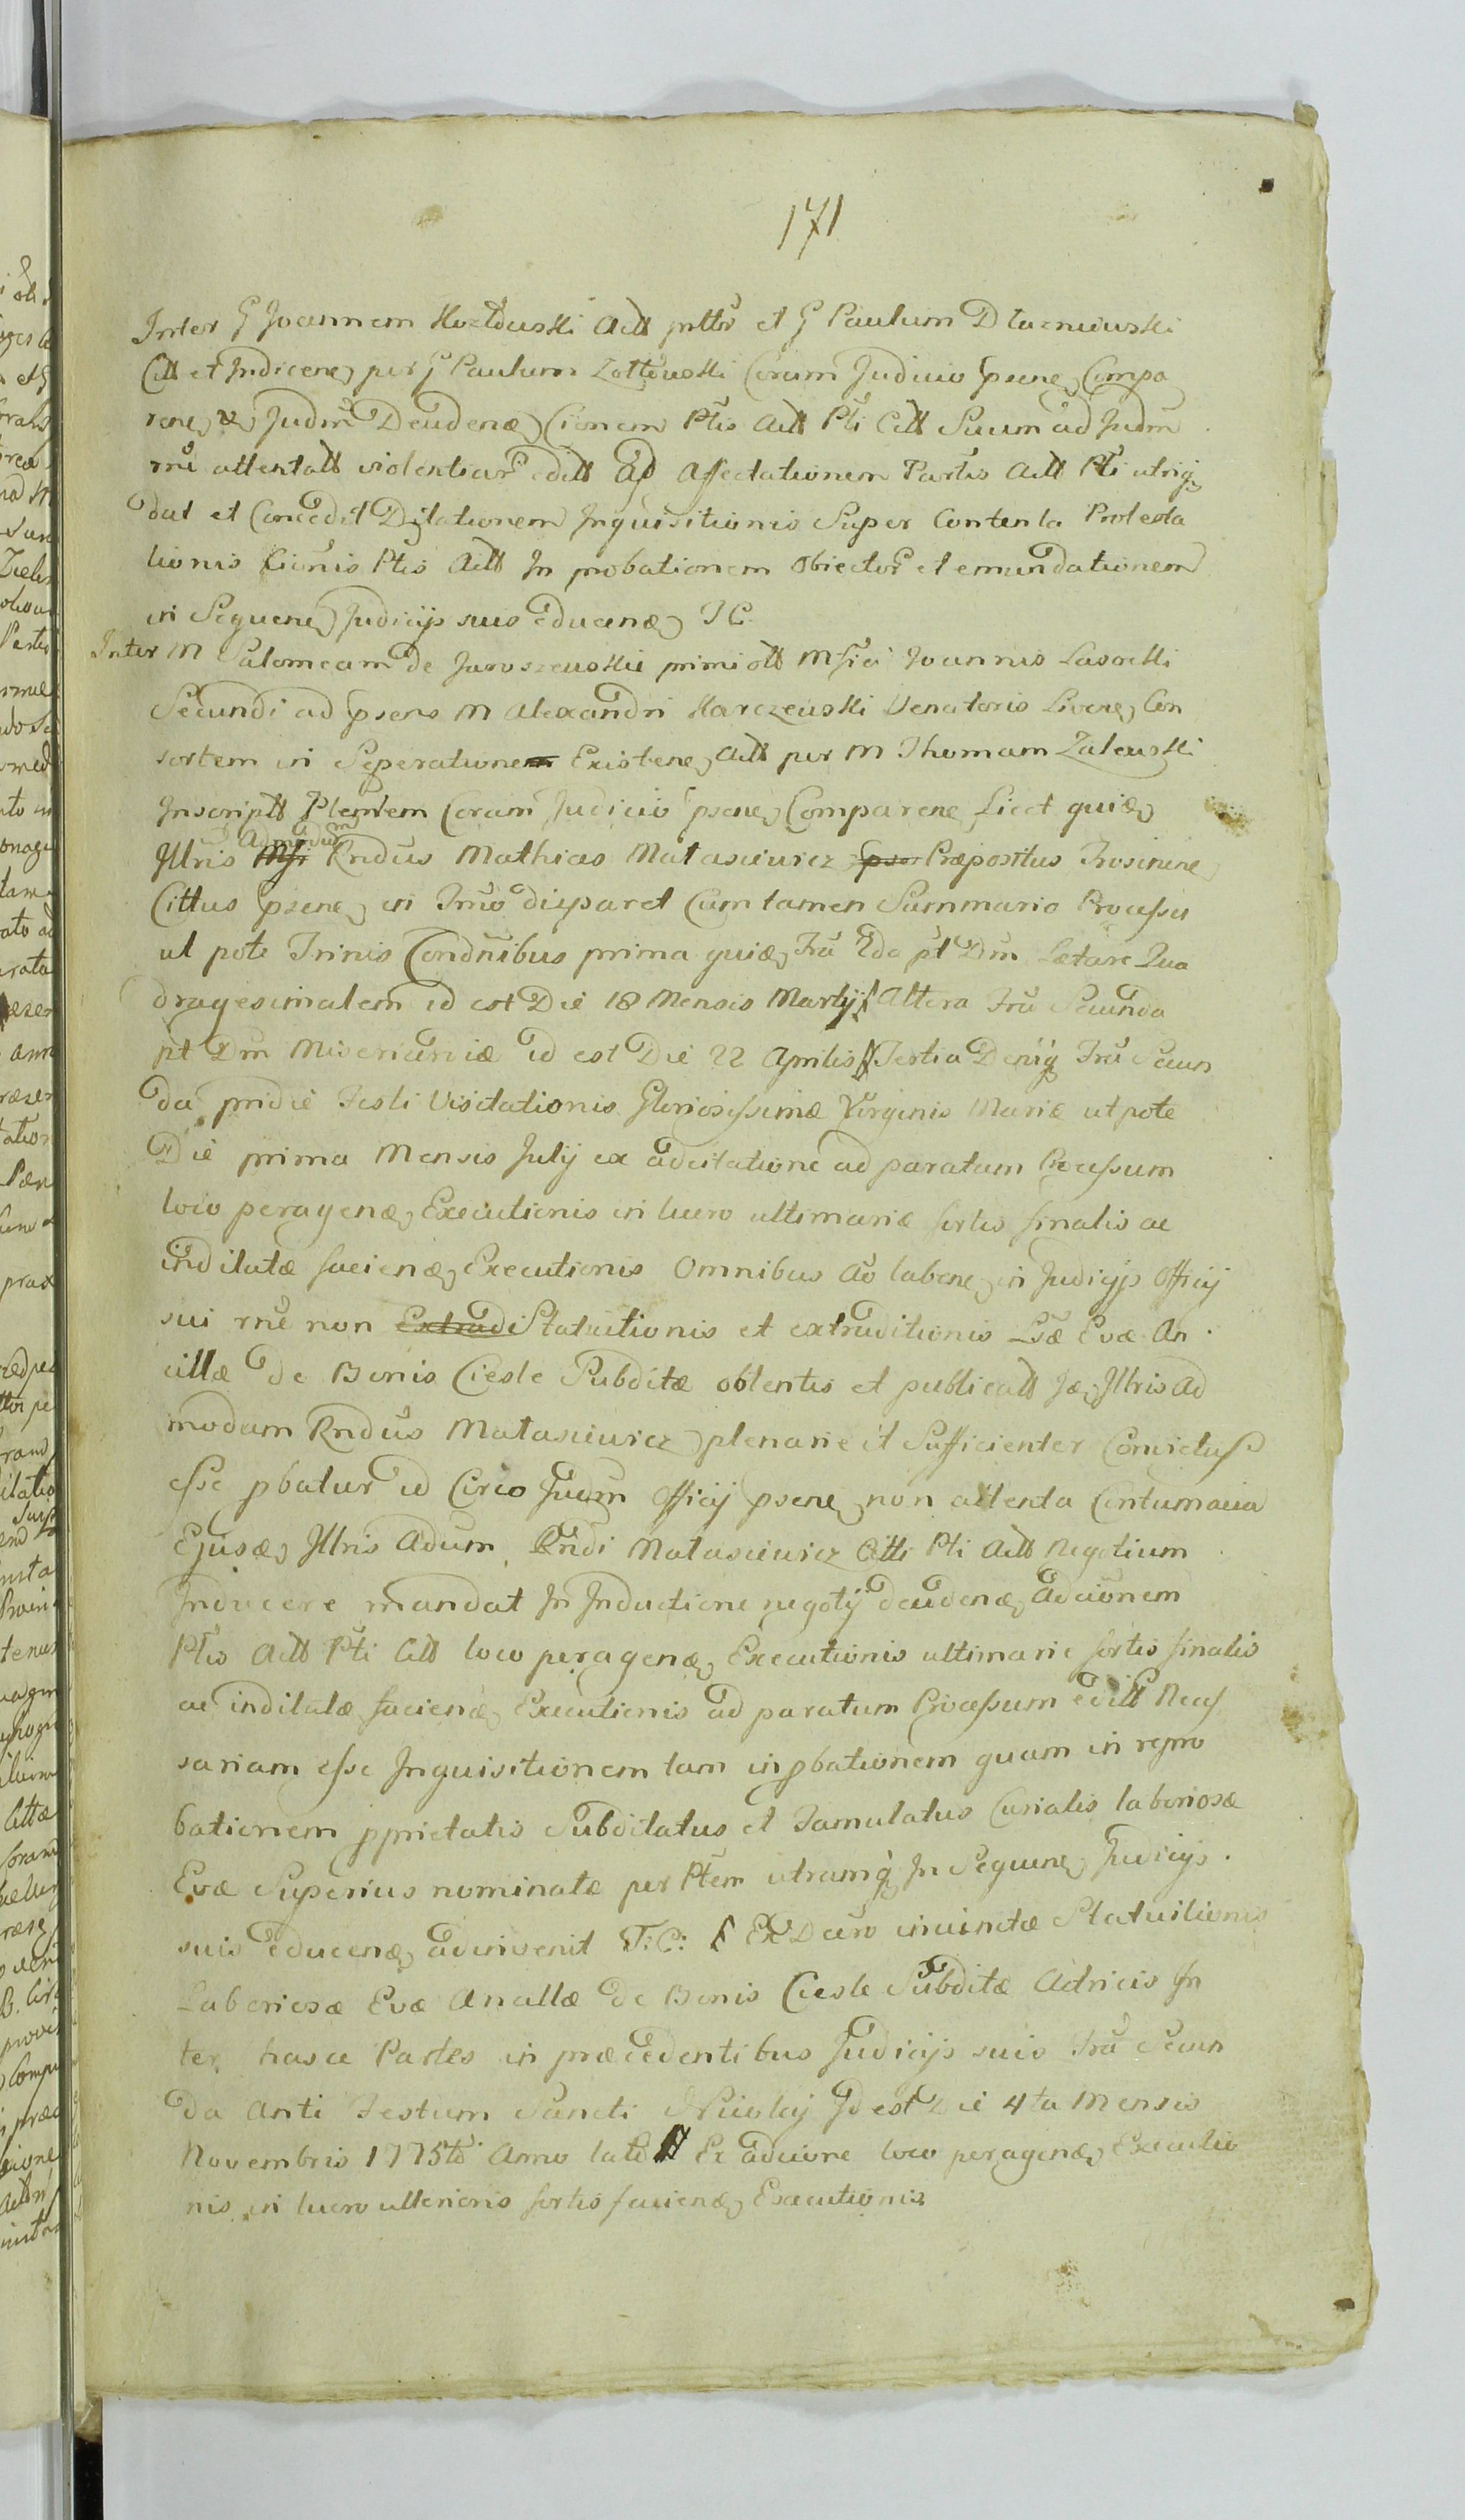 171
Inter G Joannem Kozłowski Actt et G Paulum
Citt et Indicen per G Paulum Zółtowski Coram Judicio psene Compa
rene Judm Decidenæ Cionem Ptis Actt Pti Citt Suum ad Judm
rne attentatt violentiar edilt ad Affectationem Partis Actt Pti utriq
dat et Concedit Dilationem Inquisitionis Super Contenta Protesta
tionis Cionis Ptis Actt In probationem Obiector et emundationem
in Sequene Judicijs suis educenæ T C
Inter M Salomeam de Jaroszewskie primi ott Joannis Lasocki
Secundi ad psens M Alexandri Karczewski Venatoris Livene Con
sortem in Seperatione Existene Actt per M Thomam Zalewski
Inscriptt Plentem Coram Judicio psene Comparene Licet quiæ
Illris Admodum Rndus Mathias Matasiewicz Præpositus Trosinene
Cittus psene in Tmo disparet Cum tamen Summario Processu
ut pote Trinis Condnibus prima quiæ Fra 2da pt Dm Lætare Qua
dragesimalem id est Die 18 Mensis Martij Altera Fra Secunda
pt Dm Misericordiæ id est Die 22 Aprilis Tertia Deniq Fra Secun
da pridie Festi Visitationis Gloriosissimæ Virginis Mariæ utpote
Die prima Mensis Julij ex adcitatione ad paratum Processum
loco peragenæ Executionis in lucro ultimariæ sortis finalis ac
indilatæ facienæ Executionis Omnibus ad labene in Judicijs Officij
sui rne non Extradi Statuitionis et extraditionis Lsæ Evæ An
cillæ de Bonis Ciesle Subditæ obtentis et publicatt Jæ Illris Ad
modum Rndus Matasiewicz plenarie et Sufficienter Convictus
esse pbatur id Circo Judm Officij psene non attenta Contumacia
Ejusæ Illris Adum Rndi Matasiewicz Citti Pti Actt Negotium
Inducere mandat In Inductione negotij decidenæ Adcionem
Ptis Actt Pti Citt loco peragenæ Executionis ultimarie sortis finalis
ac indilatæ facienæ Executionis ad paratum Processum edilt Neces
sariam esse Inquisitionem tam in pbationem quam in repro
bationem pprietatis Subditatus et Famulatus Curialis laboriosæ
Evæ Superius nominatæ per Ptem utramq In Sequene Judicijs
suis educenæ adinvenit T: C: Ex Decro Statuitionis
Laboriosæ Evæ Ancillæ de Bonis Ciesle Subditæ Actricis In
ter hasce Partes in præcedentibus Judicijs suis Fra Secun
da Anti Festum Sancti Nicolaj Id est Die 4ta Mensis
Novembris 1775to Anno lato Ex adcione loco peragenæ Executio
nis in lucro ulterioris sortis facienæ Executionis